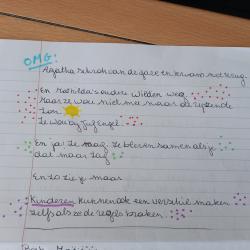 OMG:
Agatha schrok van de gare en kwam niet terug.
En Mathilda's ouders wilden weg.
Maar ze wou niet mee maar de
zon
Ze wou bij Juf Engel.
En ja! Ze mag. Ze bleven samen als je
dat maar zag
En zo zie je maar
Kinderen kunnen ook een verschil maken
zelfs als ze de regels kraken.